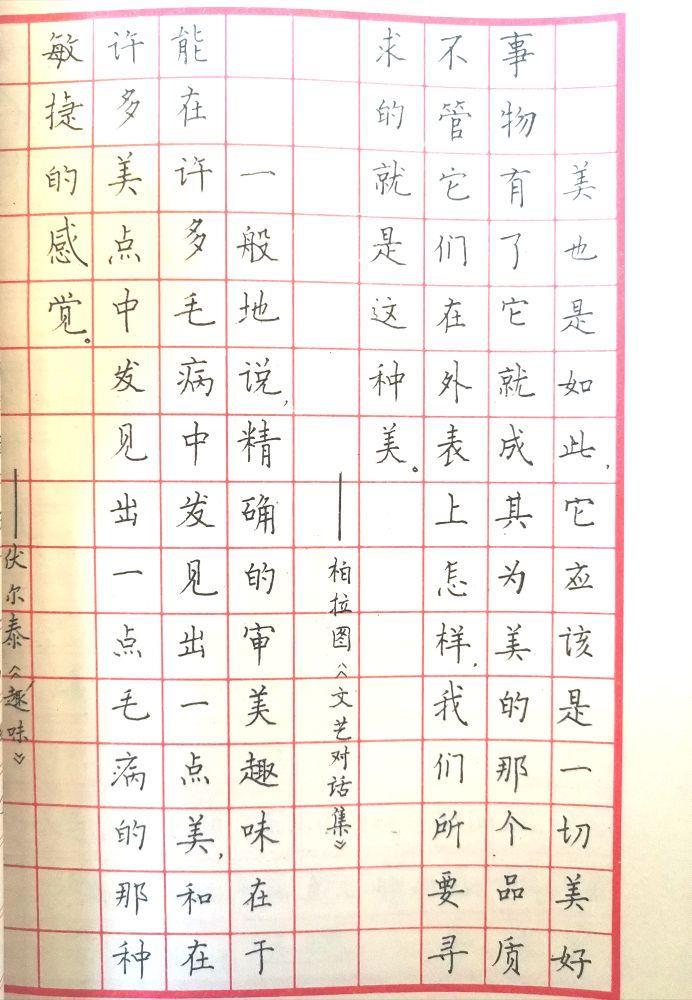 美也是如此,它应该是一切美好
事物有了它就成其为美的那个品质
不管它们在外表上怎样,我们所要寻
求的就是这种美。
——柏拉图《文艺对话集》
一般地说,精确的审美趣味在于
能在许多毛病中发见出一点美,和在
许多美点中发见出一点毛病的那种
敏捷的感觉。
——伏尔泰《趣味》